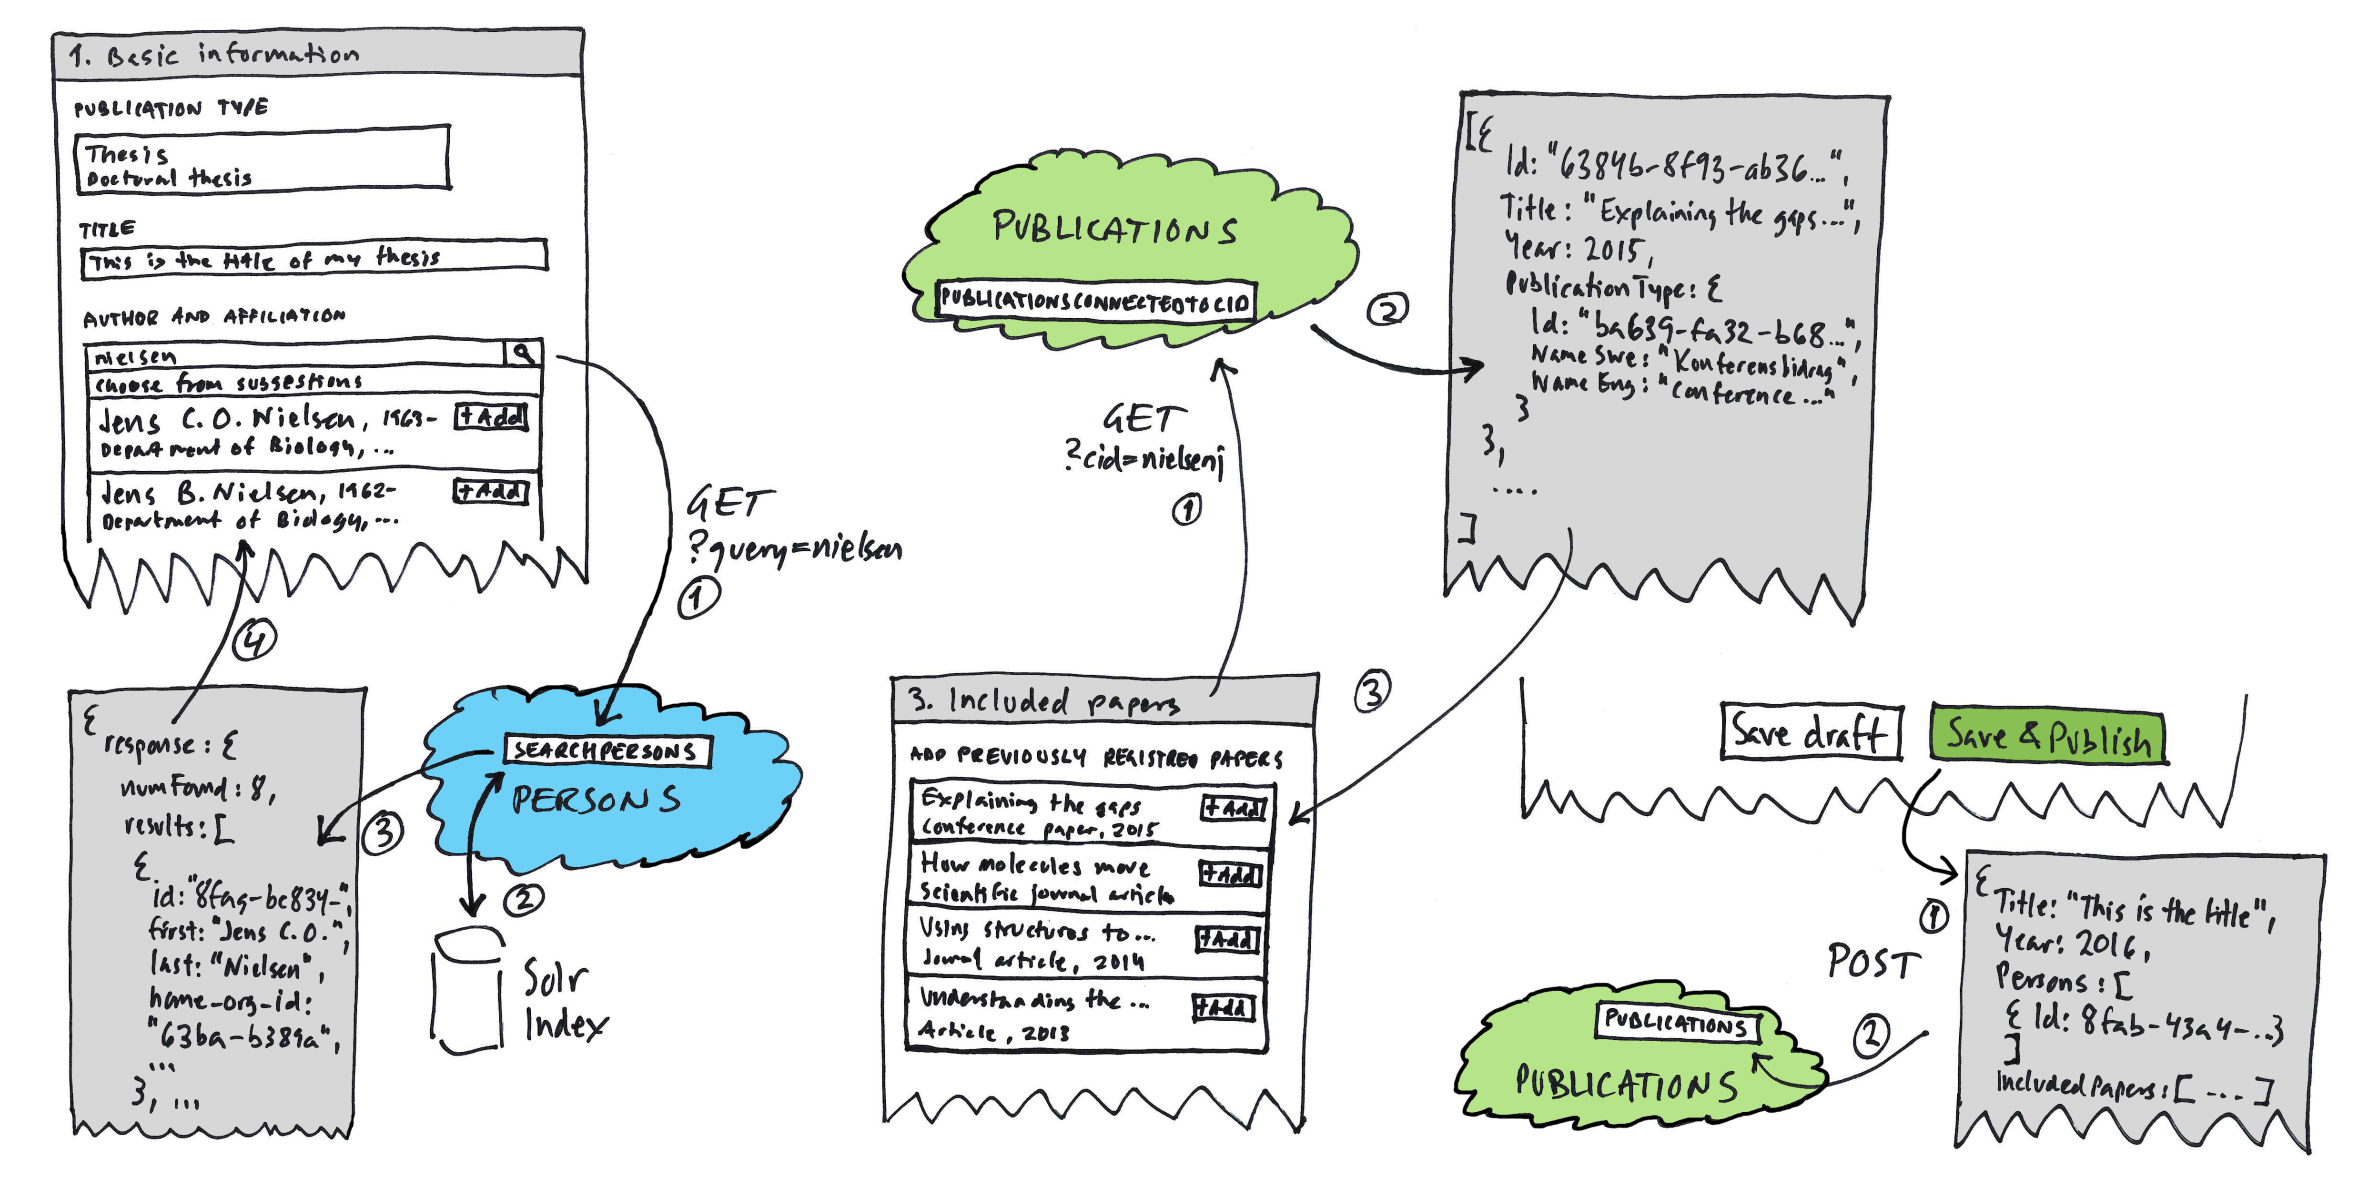 1. Basic information
PUBLICATION TYPE
Thesis
Doctoral thesis
TITLE
This is the title of my thesis
AUTHOR AND AFFILIATION
nielsen
choose from suggestions
Jens C. O. Nielsen, 1963-
+Add
Department of Biology, ...
Jens B. Nielsen, 1962-
+Add
Department of Biology, ...
GET
?query=nielsen
1
4
{
response: {
numFound: 8,
results: [
{
id: "8fag-bc834-",
first: "Jens C. O.",
last: "Nielsen",
home-org-id:
"63ba-b389a",
...
}, ...
SEARCHPERSONS
PERSONS
3
2
Solr
Index
PUBLICATIONS
PUBLICATIONSCONNECTEDTOCID
GET
?cid=nielsenj
1
2
[{
Id: "6384b-8f93-ab36...",
Title: "Explaining the gaps...",
Year: 2015,
PublicationType: {
Id: "ba639-fa32-b68...",
Name Swe: "Konferensbidrag",
Name Eng: "Conference ..."
}
},
....
]
3
3. Included papers
ADD PREVIOUSLY REGISTRED PAPERS
Explaining the gaps
Conference paper, 2015
+Add
How molecules move
Scientific journal article
+Add
Using structures to...
Journal article, 2014
+Add
Understanding the ...
Article, 2013
+Add
Save draft
Save & Publish
1
{
Title: "This is the title",
Year: 2016,
Persons: [
{ Id: 8fab-43a4-...}
]
IncludedPapers: [ --- ]
POST
2
PUBLICATIONS
PUBLICATIONS